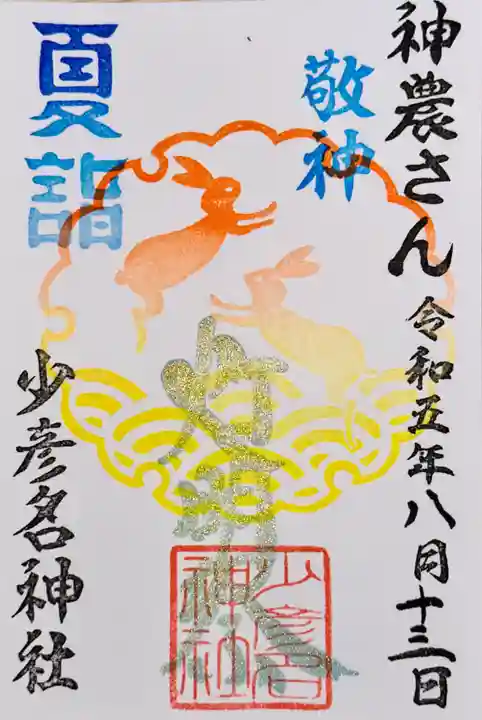 神農さん 令和五年八月十三日
敬神
夏詣
少彦名神社
少彦名
神社